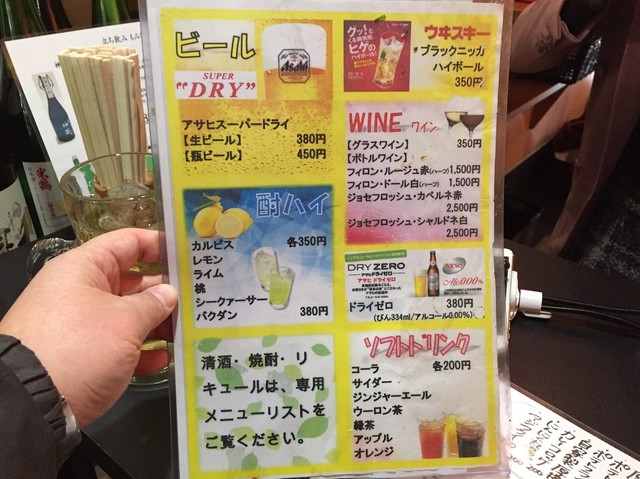 立ち飲み
ビール
SUPER
"DRY"
Asahi
アサヒスーパードライ
【生ビール】 380円
【瓶ビール】 450円
酎ハイ
カルピス 各350円
レモン
ライム
桃
シークァーサー
バクダン 380円
清酒・焼酎・リ
キュールは、専用
メニューリストを
ご覧ください。
グッ!と
ヒゲの
ハイボール!
ウヰスキー
ブラックニッカ
ハイボール
350円
WINE ワイン
【グラスワイン】 350円
【ボトルワイン】
フィロン・ルージュ赤(ハーフ)1,500円
フィロン・ドール白(ハーフ) 1,500円
ジョセフロッシュ・カベルネ赤
2,500円
ジョセフロッシュ・シャルドネ白
2,500円
DRY ZERO
アサヒ ドライゼロ
NEW!
Alc.0.00%
ドライゼロ 380円
(びん334ml/アルコール0.00%)
ソフトドリンク
コーラ 各200円
サイダー
ジンジャーエール
ウーロン茶
緑茶
アップル
オレンジ